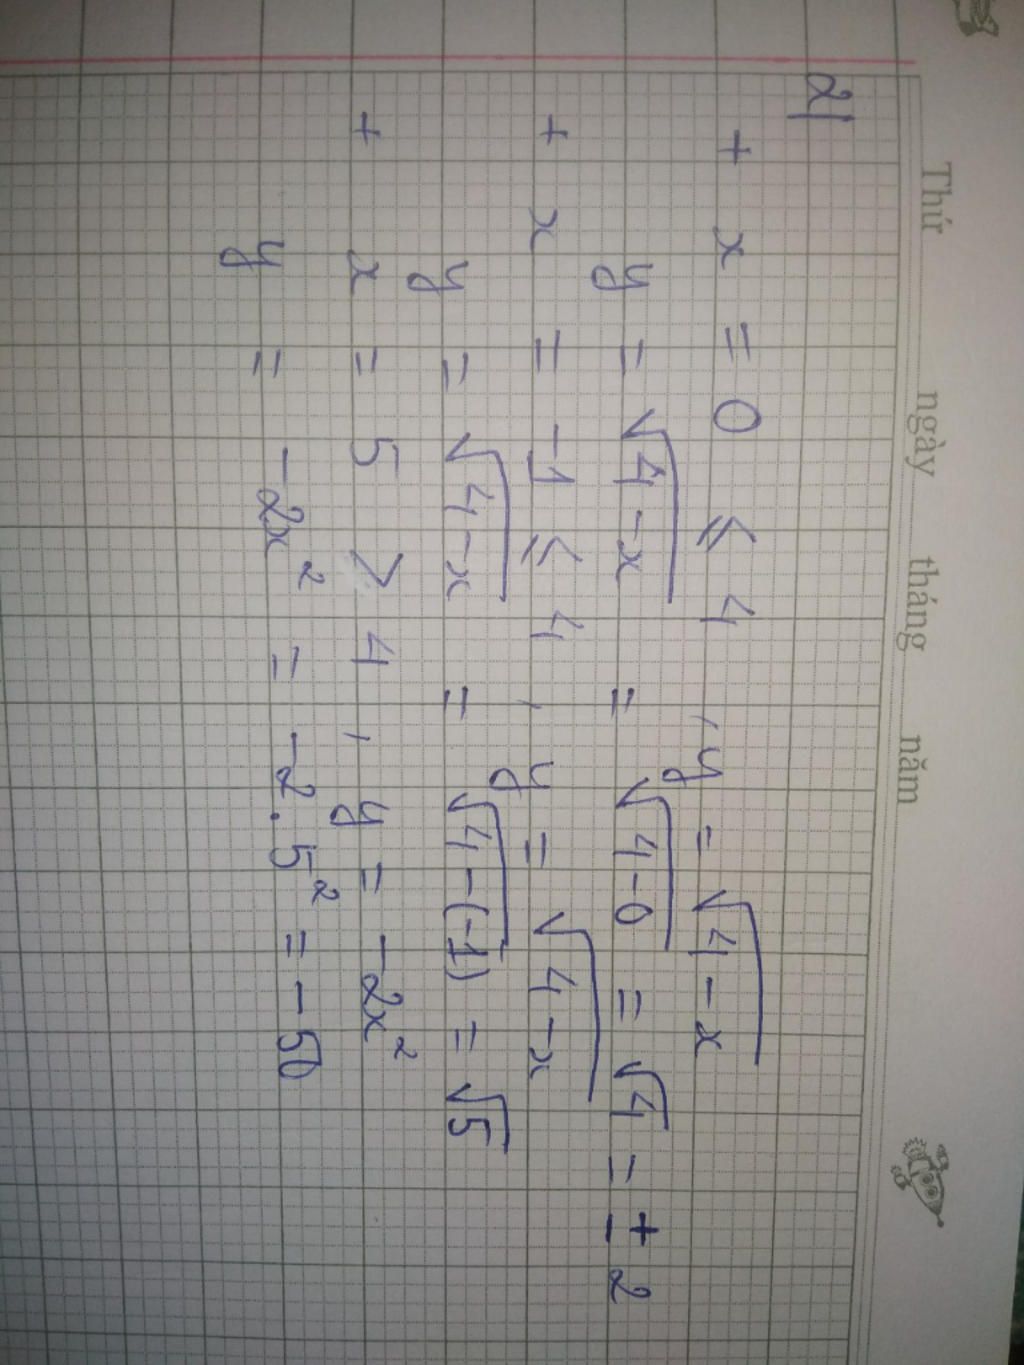 Thứ ngày tháng năm
2)
+ x = 0 ≤ 4 , y = √4-x
y = √4-x = √4-0 = √4 = ±2
+ x = -1 ≤ 4 , y = √4-x
y = √4-x = √4-(-1) = √5
+ x = 5 > 4 , y = -2x²
y = -2x² = -2.5² = -50